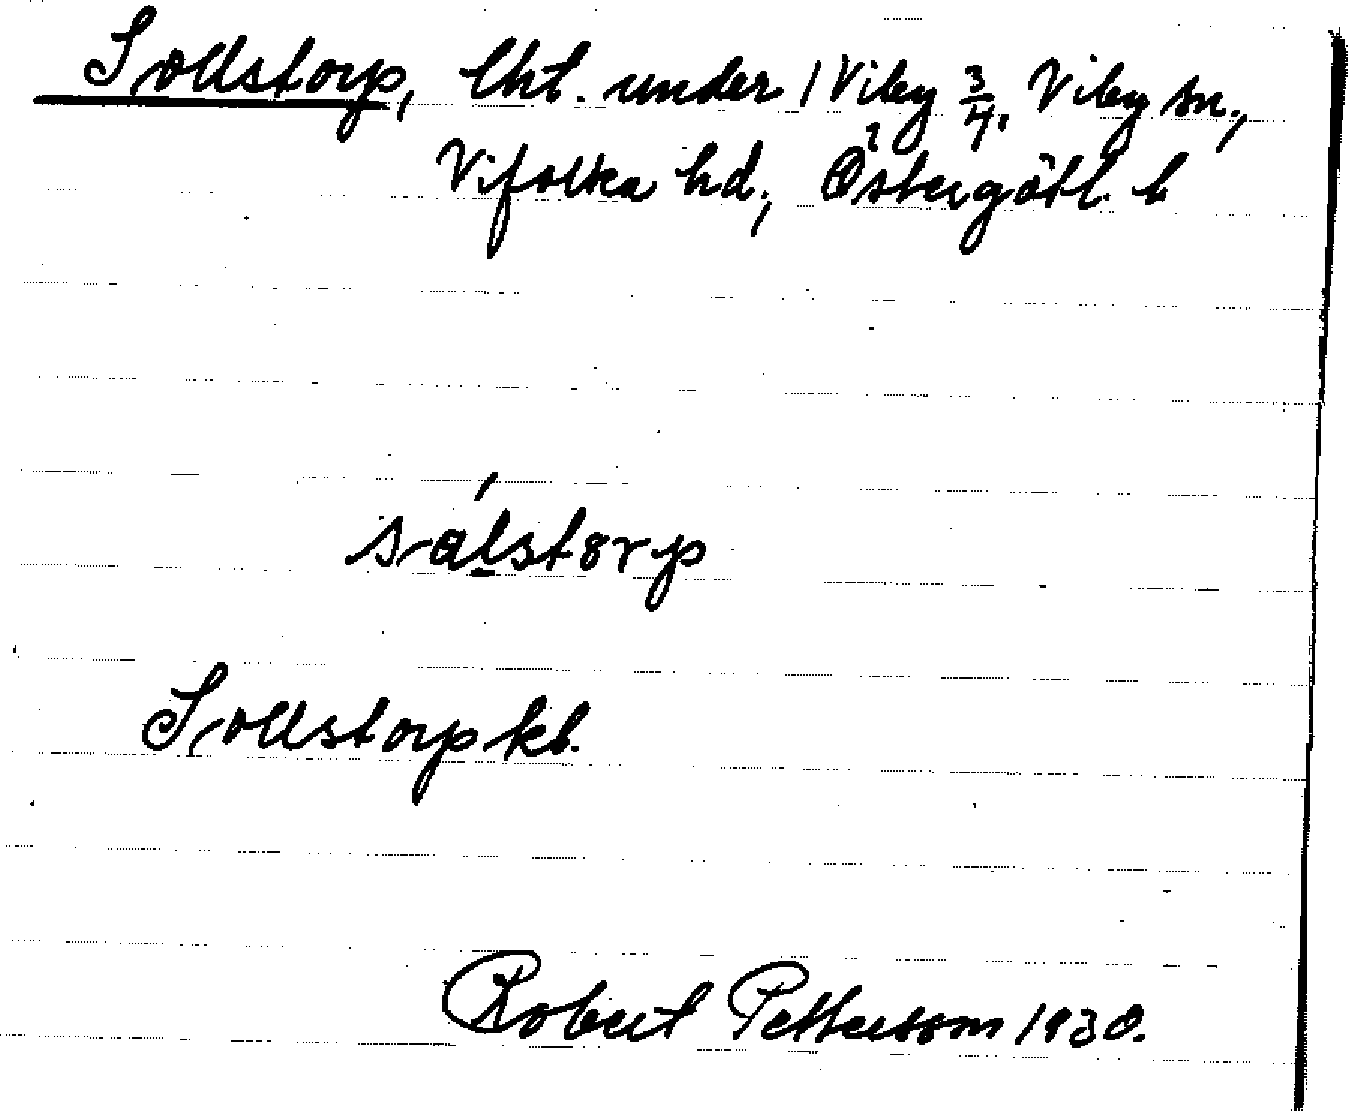 Sollstorp, lht. under / Viby 3/4. Viby sn.,
Vifolka hd., Östergötl. l
sálstorp
Sollstorp kb.
Robert Pettersson 1930.